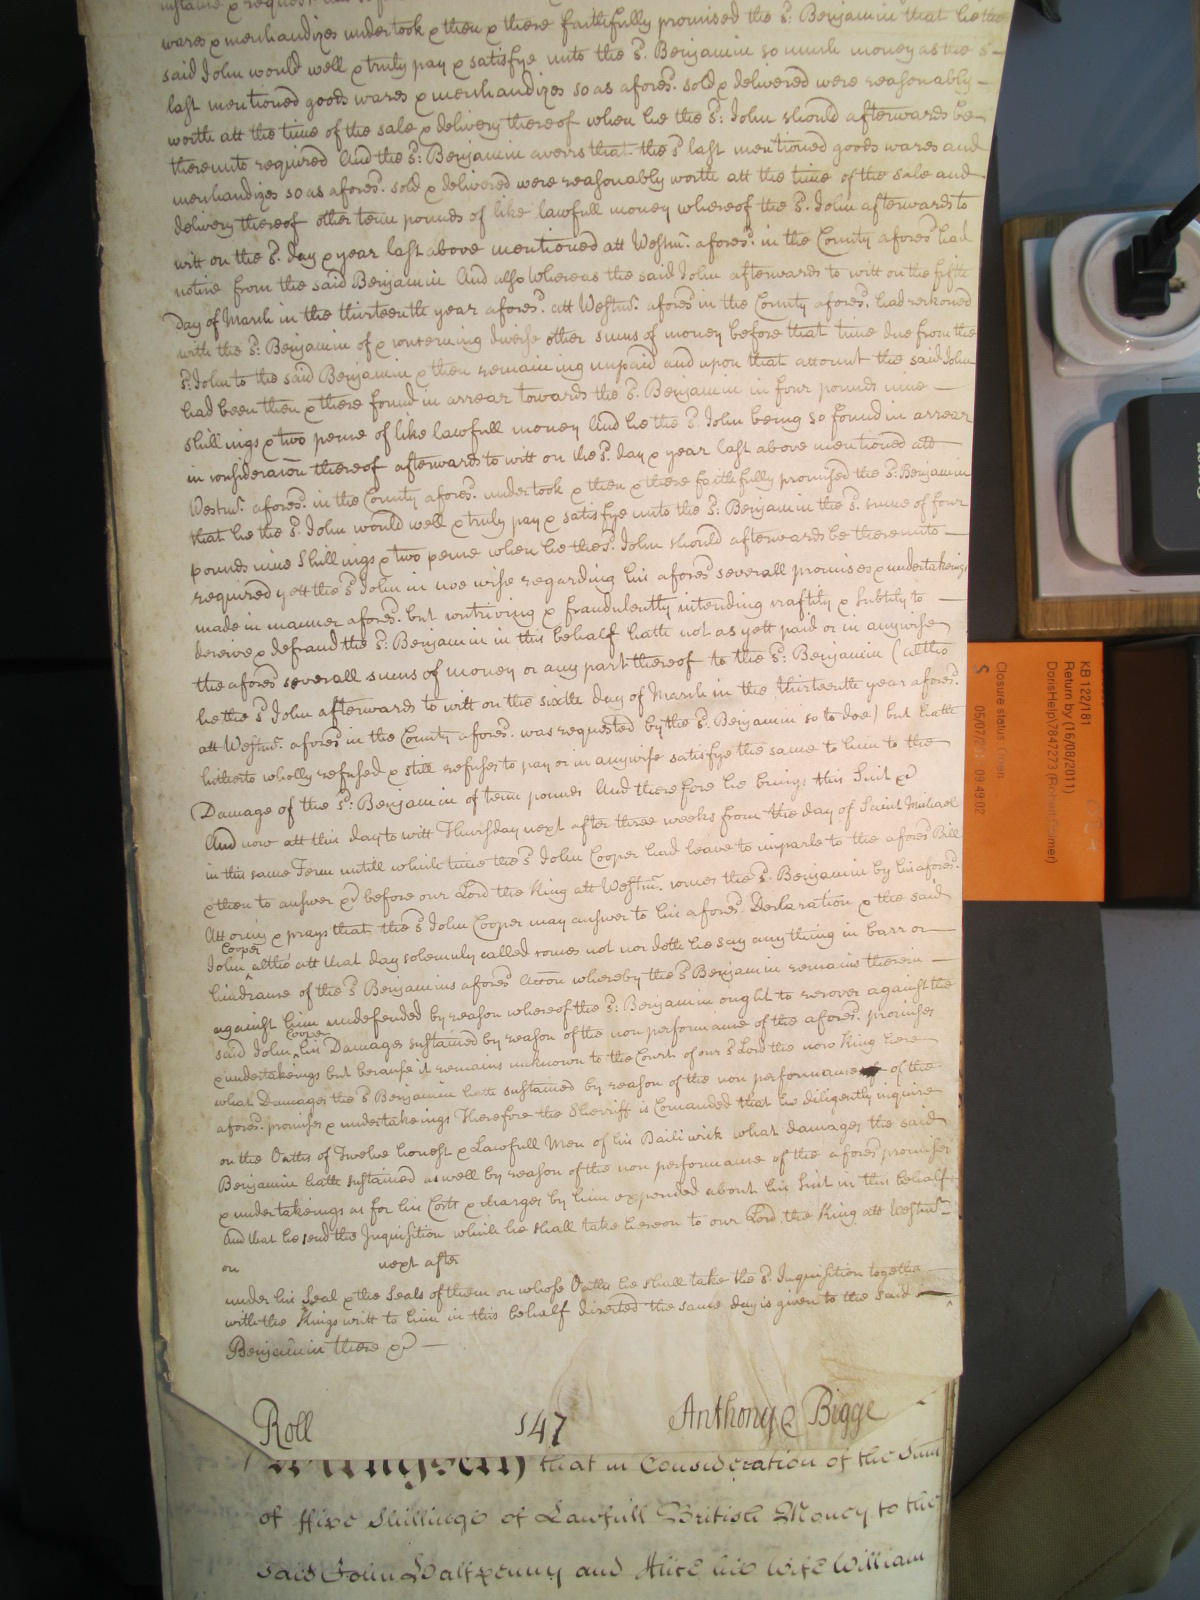 wares & merchandizes undertook & then & there faithfully promised the s:^d Benjamin that he the
said John would well & truly pay & satisfye unto the s:^d Benjamin so much money as the s^d
last mentioned goods wares & merchandizes so as afores:^d sold & delivered were reasonably
worth att the time of the sale & delivery thereof when he the s:^d John should afterwards be
thereunto required And the s:^d Benjamin averrs that the s^d last mentioned goods wares and
merchandizes so as afores:^d sold & delivered were reasonably worth att the time of the sale and
delivery thereof other tenn pounds of like lawfull money whereof the s:^d John afterwards to
witt on the s:^d day & year last above mentioned att Westm:^r afores:^d in the County afores:^d had
notice from the said Benjamin And also Whereas the said John afterwards to witt on the fifth
day of March in the thirteenth year afores:^d att Westm:^r afores^d in the County afores:^d had reckoned
with the s:^d Benjamin of & concerning diverse other sums of money before that time due from the
s:^d John to the said Benjamin & then remaining unpaid and upon that account the said John
had been then & there found in arrear towards the s:^d Benjamin in four pounds nine
shillings & two pence of like lawfull money And he the s:^d John being so found in arrear
in consideracõn thereof afterwards to witt on the s:^d day & year last above mentioned att
Westm:^r afores:^d in the County afores:^d undertook & then & there faithfully promised the s:^d Benjamin
that he the s:^d John would well & truly pay & satisfye unto the s:^d Benjamin the s:^d sume of four
pounds nine Shillings & two pence when he the s:^d John should afterwards be thereunto
required yett the s:^d John in noe wise regarding his afores^d severall promises & undertakings
made in manner afores:^d but contriving & fraudulently intending craftily & subtily to
deceive & defraud the s:^d Benjamin in this behalf hath not as yett paid or in anywise
the afores^d severall sums of money or any part thereof to the s:^d Benjamin (altho
he the s^d John afterwards to witt on the sixth day of March in the thirteenth year afores:^d
att Westm:^r afores^d in the County afores:^d was requested by the s:^d Benjamin so to doe) but hath
hitherto wholly refused & still refuses to pay or in anywise satisfye the same to him to the
Damage of the s:^d Benjamin of tenn pounds And therefore he brings this Suit &c
And now att this day to witt Thursday next after three weeks from the day of Saint Michael
in this same Term untill which time the s^d John Cooper had leave to imparle to the afores^d Bill
& then to answer &c before our Lord the King att Westm:^r comes the s:^d Benjamin by his afores:^d
Attorny & prays that the s^d John Cooper may answer to his afores:^d Declaration & the said
Cooper
John altho' att that day solemnly called comes not nor doth he say anything in barr or
hindrance of the s^d Benjamins afores^d Accõn whereby the s^d Benjamin remains therein
against him undefended by reason whereof the s:^d Benjamin ought to recover against the
Cooper
said John his Damages sustained by reason of the non performance of the afores:^d promises
& undertakeings but because it remains unknown to the Court of our s^d Lord the now King here
what Damages the s^d Benjamin hath sustained by reason of the non performance of the
afores:^d promises & undertakeings Therefore the Sheriff is Comanded that he diligently inquire
on the Oaths of Twelve honest & Lawfull Men of his Bailiwick what damages the said
Benjamin hath sustained as well by reason of the non performance of the afores^d promises
& undertakeings as for his Costs & charges by him expended about his Suit in this behalf
And that he send the Inquisition which he shall take hereon to our Lord the King att Westm^r
on next after
under his Seal & the Seals of them on whose Oaths he shall take the s:^d Inquisition together
with the Kings writt to him in this behalf directed the same day is given to the said
Benjamin there &c
Roll 147 Anthony & Bigge
that in Consideration of the Sum
of ffive Shillings of Lawfull British Money to the
said John Halfpenny and Alice his Wife William
KB 122/181
Return by (16/08/2011)
DorisHelp\7847273 (Robert Palmer)
Closure status Open
S 05/07/ 09:49:02